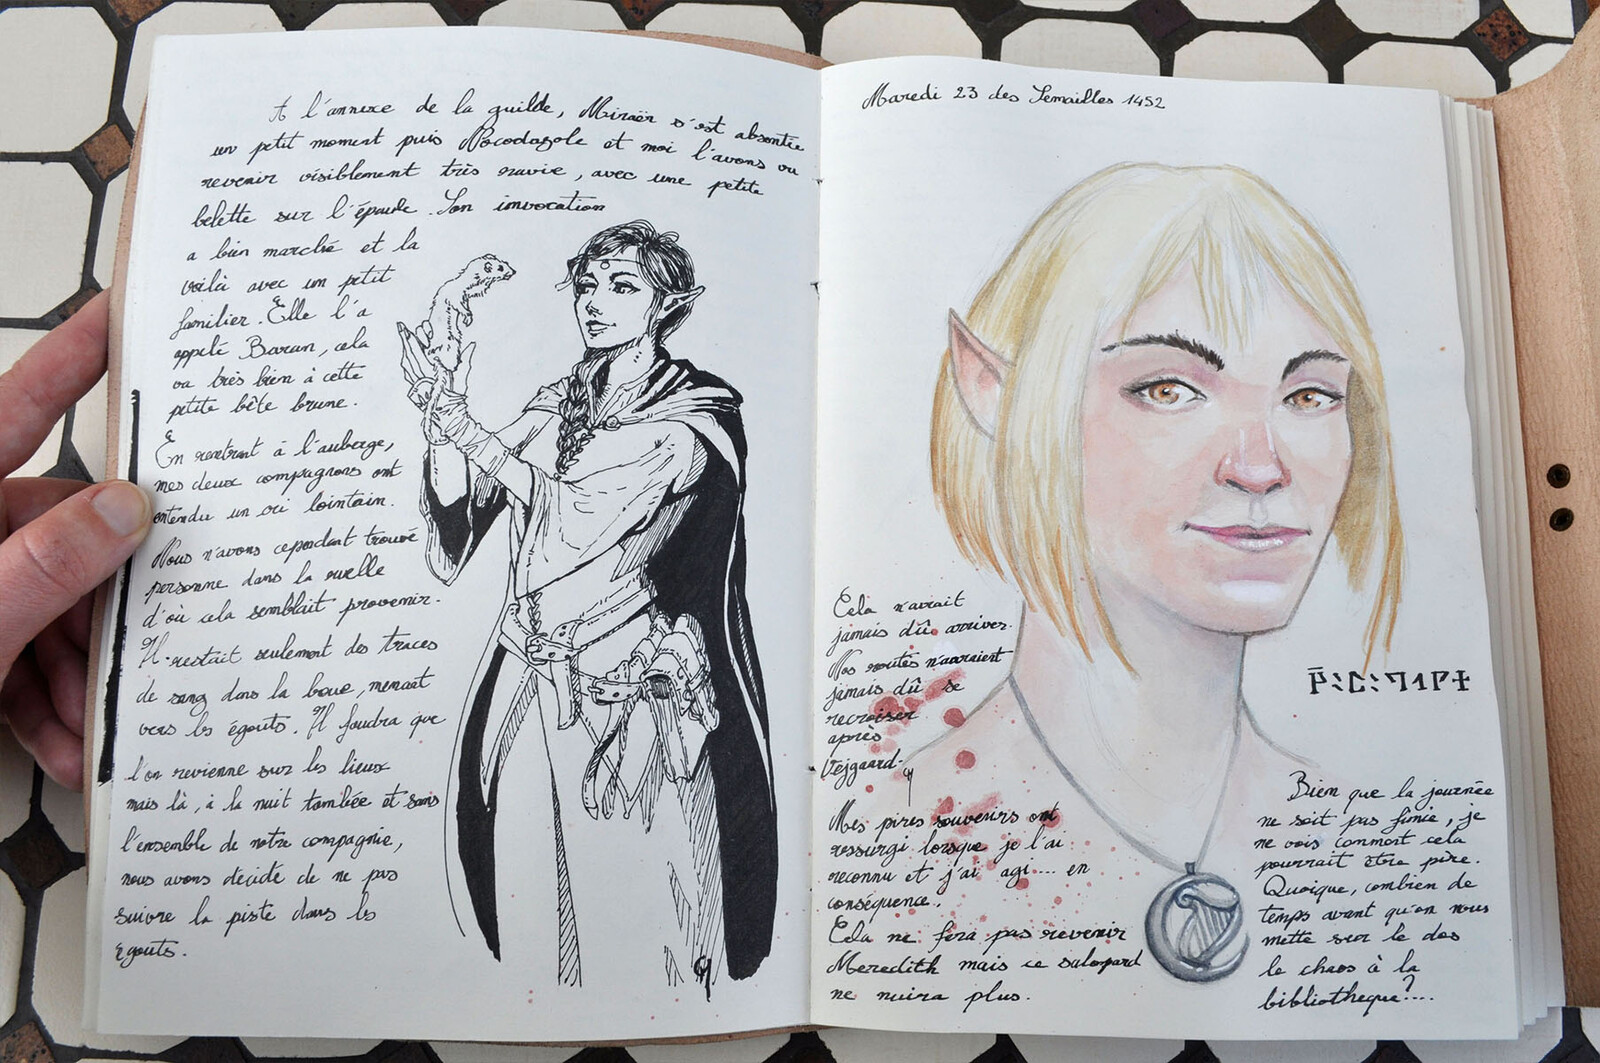 A l'annexe de la guilde, Miraër s'est absentée
un petit moment puis Pocodazole et moi l'avons vu
revenir visiblement très ravie, avec une petite
belette sur l'épaule. Son invocation
a bien marché et la
voilà avec un petit
familier. Elle l'a
appelé Baran, cela
va très bien à cette
petite bête brune.
En rentrant à l'auberge,
mes deux compagnons ont
entendu un cri lointain.
Nous n'avons cependant trouvé
personne dans la ruelle
d'où cela semblait provenir.
Il restait seulement des traces
de sang dans la boue, menant
vers les égouts. Il faudra que
l'on revienne sur les lieux
mais là, à la nuit tombée et sans
l'ensemble de notre compagnie,
nous avons décidé de ne pas
suivre la piste dans les
égouts.
Maredi 23 des Semailles 1452
Cela n'aurait
jamais dû arriver.
Nos routes n'auraient
jamais dû se
recroiser
après
Vejgaard.
Mes pires souvenirs ont
ressurgi lorsque je l'ai
reconnu et j'ai agi.... en
conséquence..
Cela ne fera pas revenir
Meredith mais ce salopard
ne nuira plus.
Bien que la journée
ne soit pas finie, je
ne vois comment cela
pourrait être pire.
Quoique, combien de
temps avant qu'on nous
mette sur le dos
le chaos à la
bibliothèque?....